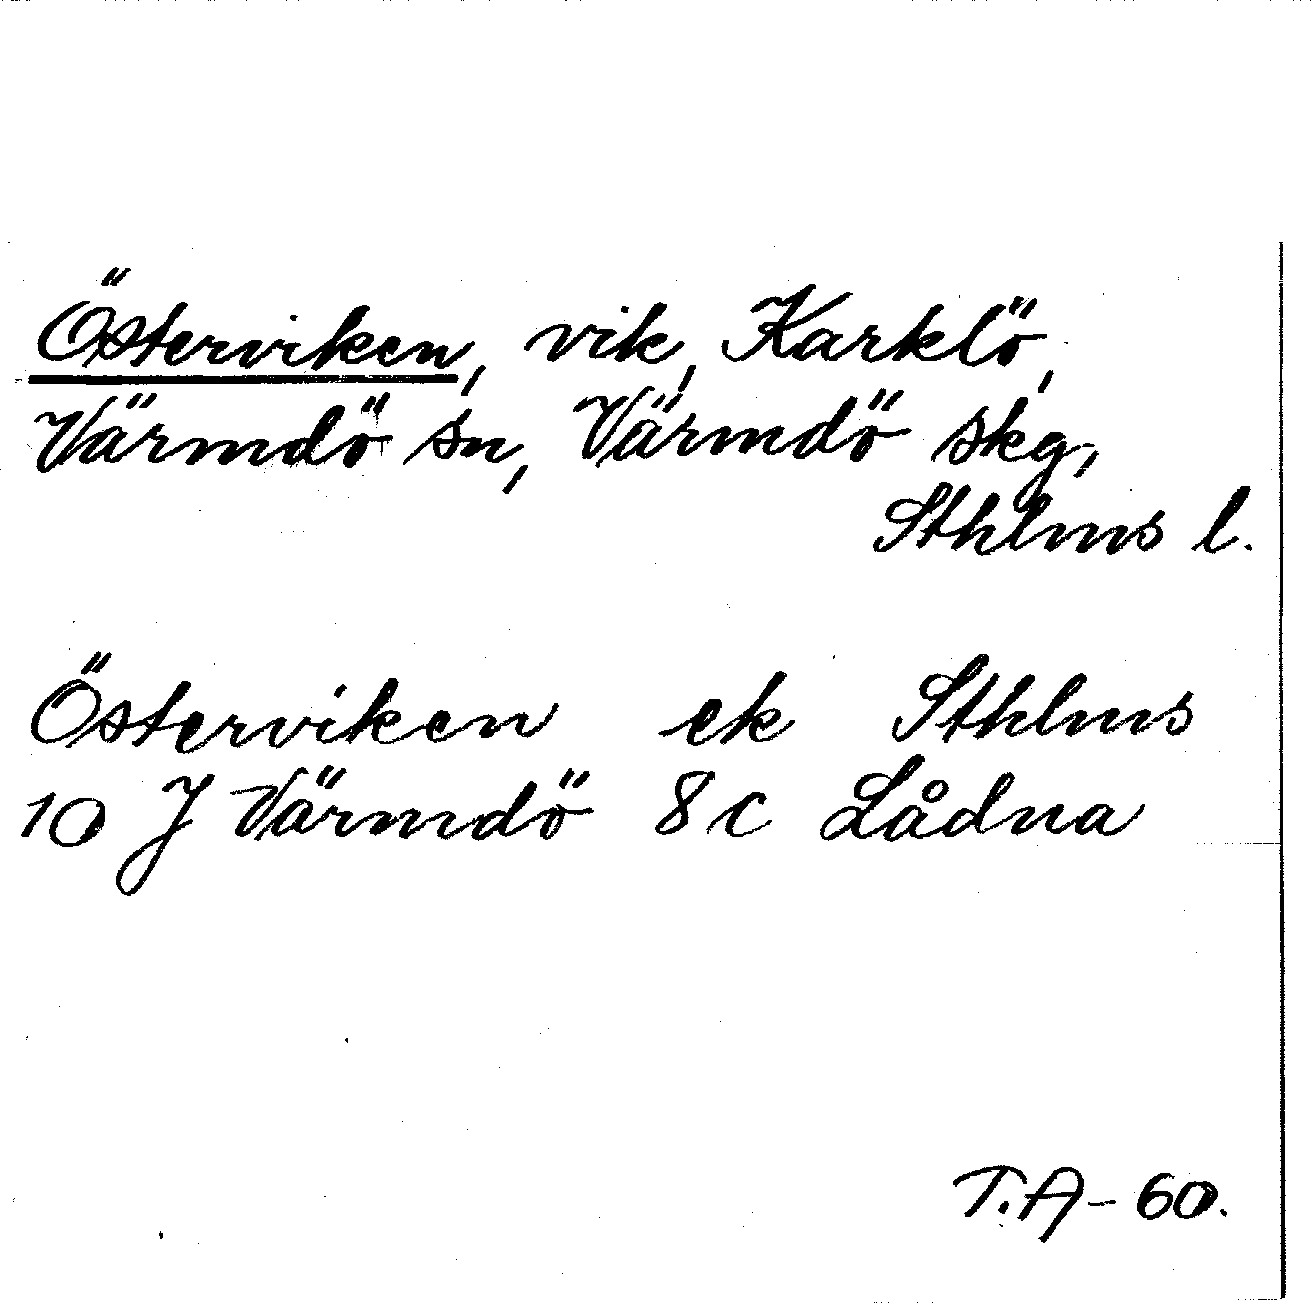 Österviken, vik, Karklö,
Värmdö sn, Värmdö skg,
Sthlms l.
Österviken ek Sthlms
10 J Värmdö 8c Lådna
T.A-60.